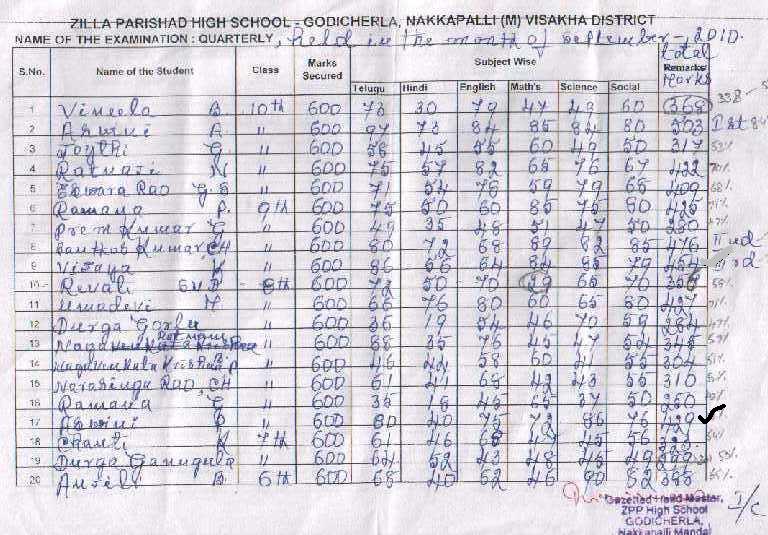 ZILLA PARISHAD HIGH SCHOOL - GODICHERLA, NAKKAPALLI (M) VISAKHA DISTRICT
NAME OF THE EXAMINATION : QUARTERLY, held in the month of september - 2010.
S.No. Name of the Student Class Marks Secured Subject Wise total Remarks Marks
Telugu Hindi English Math's Science Social
1 Vineela B. 10th 600 73 30 79 47 49 60 368 338
2 Aswini A. " 600 97 73 84 85 84 80 503 Ist 84%
3 Joythi G. " 600 58 45 55 60 49 50 317 53%
4 Ratnaji N " 600 75 57 82 65 76 67 422 70%
5 Eswara Rao G.S " 600 71 54 76 59 79 65 409 68%
6 Ramana P. 9th 600 75 50 60 85 75 80 425 71%
7 Prem Kumar G " 600 49 35 48 51 47 50 280 47%
8 Santhosh Kumar, CH " 600 80 72 68 89 82 85 476 IInd
9 Vijaya K " 600 86 66 64 84 85 79 454 IIIrd
10 Revali G.V.P 8th 600 72 50 70 29 65 70 356 59%
11 Umadevi Y " 600 66 76 80 60 65 80 427 71%
12 Durga " 600 36 19 54 46 70 59 284 47%
13 " 600 88 35 76 45 47 54 345
14 " 600 46 44 58 60 41 55 304 51%
15 Narasinga Rao, CH " 600 61 41 68 42 43 55 310 51%
16 Ramana G " 600 35 18 45 65 37 50 250
17 Aswini P " 600 80 40 75 72 86 76 429
18 Chanti K 7th 600 61 46 68 47 45 56 323
19 Durga Ganugula " 600 64 52 43 48 45 49
20 Anjili B. 6th 600 68 40 62 46 80 52 385
Gazetted Head Master, I/C
ZPP High School
GODICHERLA,
Nakkapalli Mandal